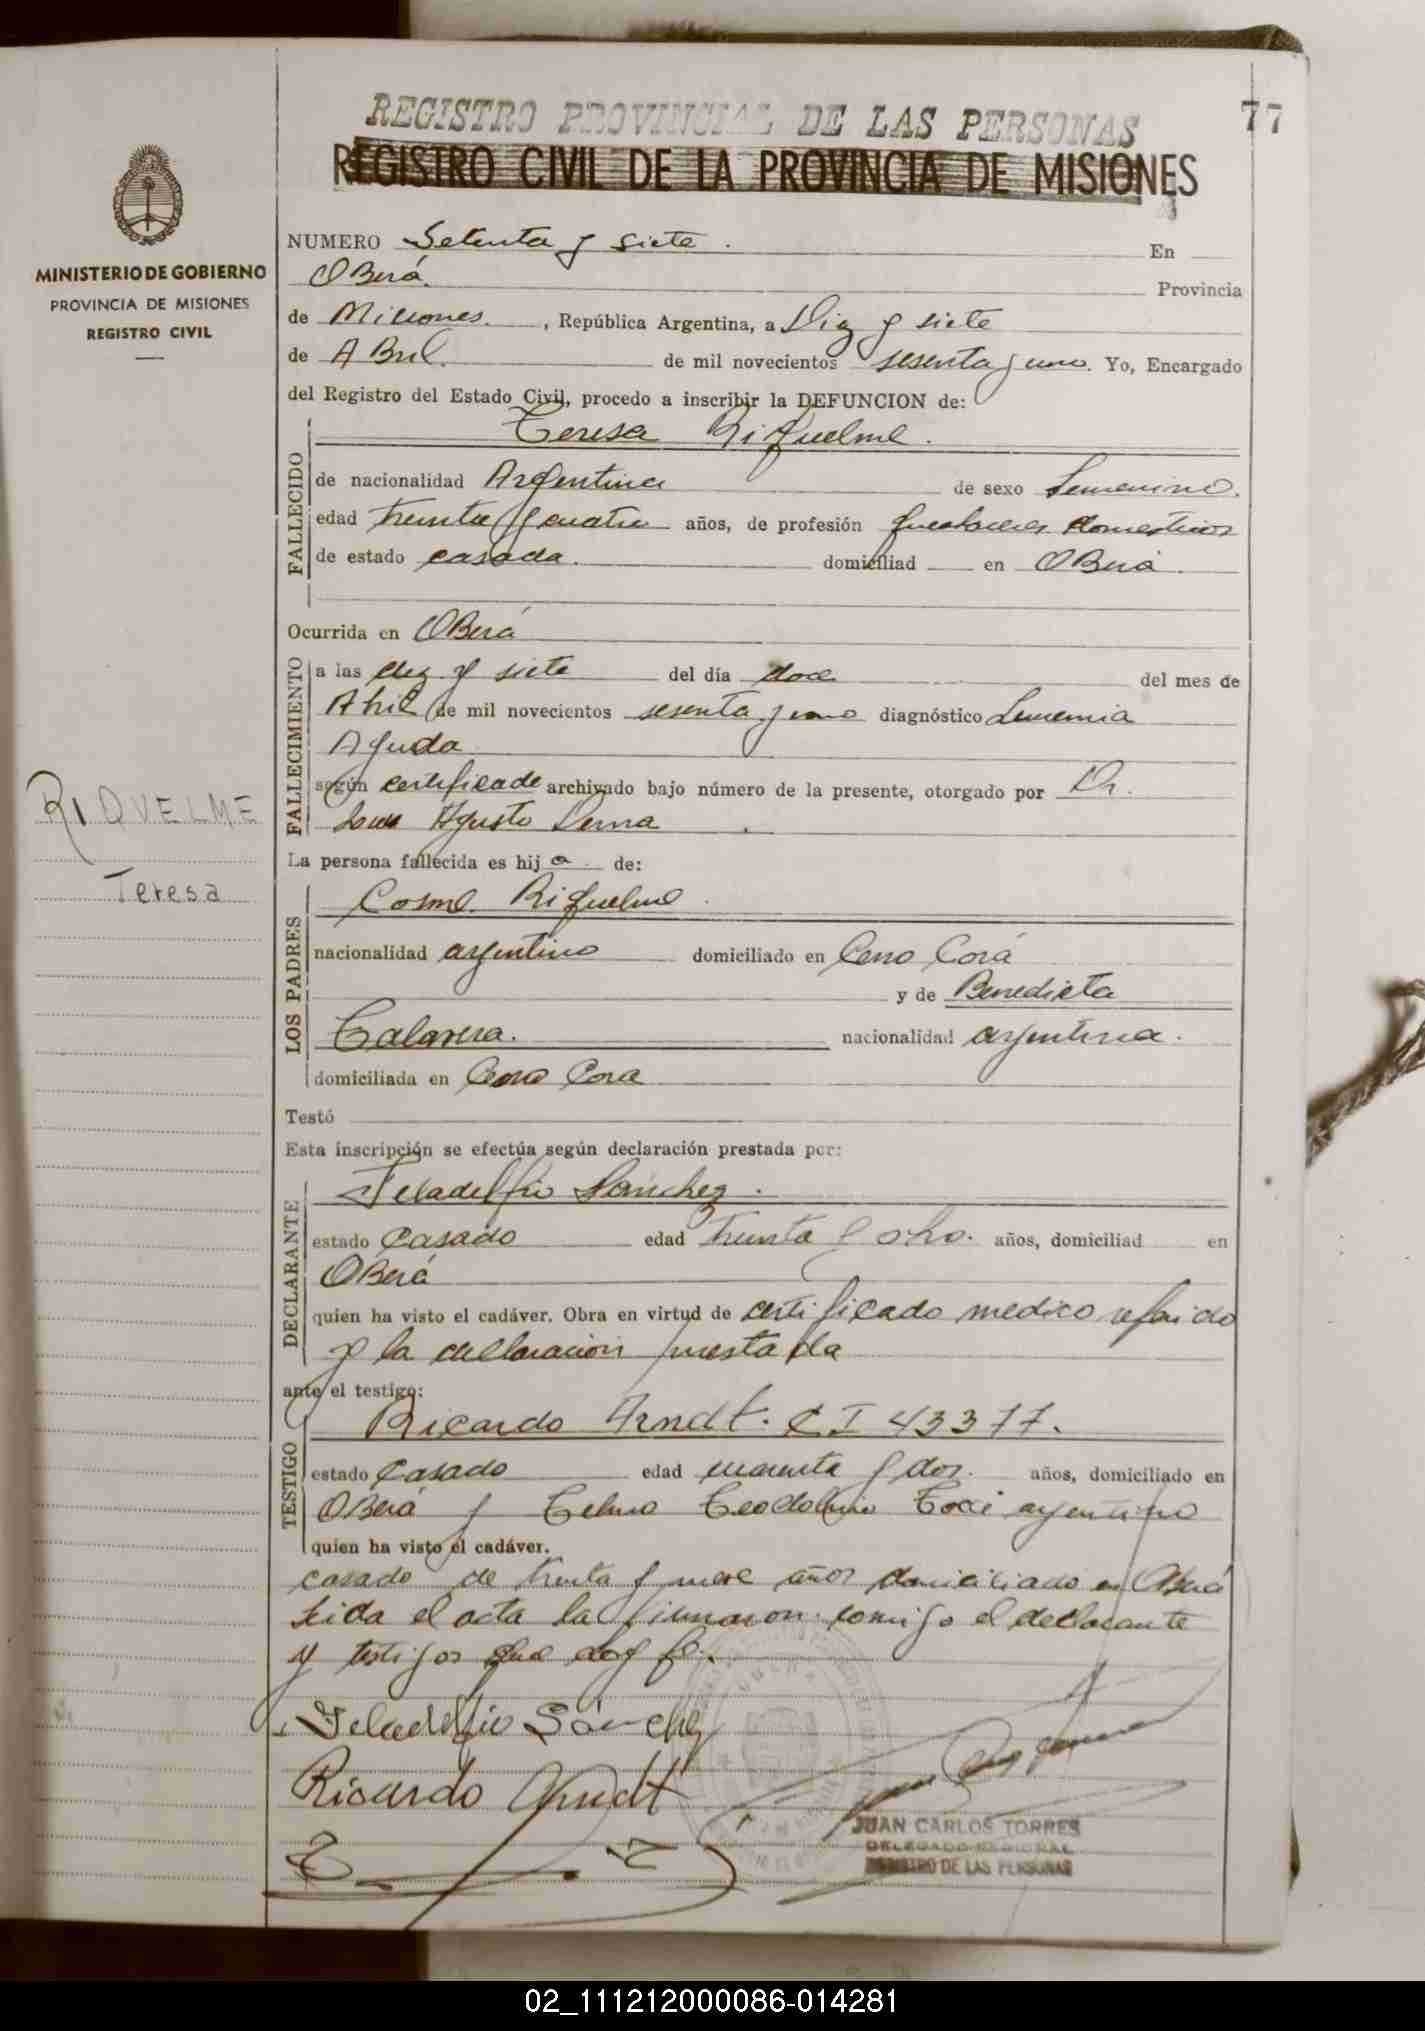 REGISTRO PROVINCIAL DE LAS PERSONAS
77
REGISTRO CIVIL DE LA PROVINCIA DE MISIONES
MINISTERIO DE GOBIERNO
PROVINCIA DE MISIONES
REGISTRO CIVIL
NUMERO Setenta y siete. En
OBerá. Provincia
de Misiones. , República Argentina, a Diez y siete
de ABril. de mil novecientos sesenta y uno. Yo, Encargado
del Registro del Estado Civil, procedo a inscribir la DEFUNCION de:
Teresa Riquelme.
FALLECIDO
de nacionalidad Argentina de sexo femenino.
edad treinta y cuatro años, de profesión quehaceres domesticos
de estado casada. domiciliad en OBerá.
Ocurrida en OBerá
FALLECIMIENTO
a las diez y siete del día doce del mes de
Abril de mil novecientos sesenta y uno diagnóstico
Aguda
según certificado archivado bajo número de la presente, otorgado por Dr.
Agusto
RIQUELME
Teresa
La persona fallecida es hij a de:
LOS PADRES
Cosme Riquelme.
nacionalidad argentino domiciliado en Cerro Corá
y de Benedicta
Talavera. nacionalidad argentina.
domiciliada en Cerro Cora
Testó
Esta inscripción se efectúa según declaración prestada por:
DECLARANTE
Feladelfio Sanchez.
estado Casado edad treinta y ocho. años, domiciliad en
OBerá
quien ha visto el cadáver. Obra en virtud de certificado medico referido
y la declaración prestada
ante el testigo:
TESTIGO
Ricardo Arndt. C I 43377.
estado Casado edad cuarenta y dos. años, domiciliado en
OBerá y Telmo argentino
quien ha visto el cadáver.
casado de treinta y nueve años domiciliado en OBerá
Leida el acta la firmaron conmigo el declarante
y testigos que doy fe.
Feladelfio Sánchez
Ricardo Arndt
JUAN CARLOS TORRES
DELEGADO REGIONAL
REGISTRO DE LAS PERSONAS
02_111212000086-014281